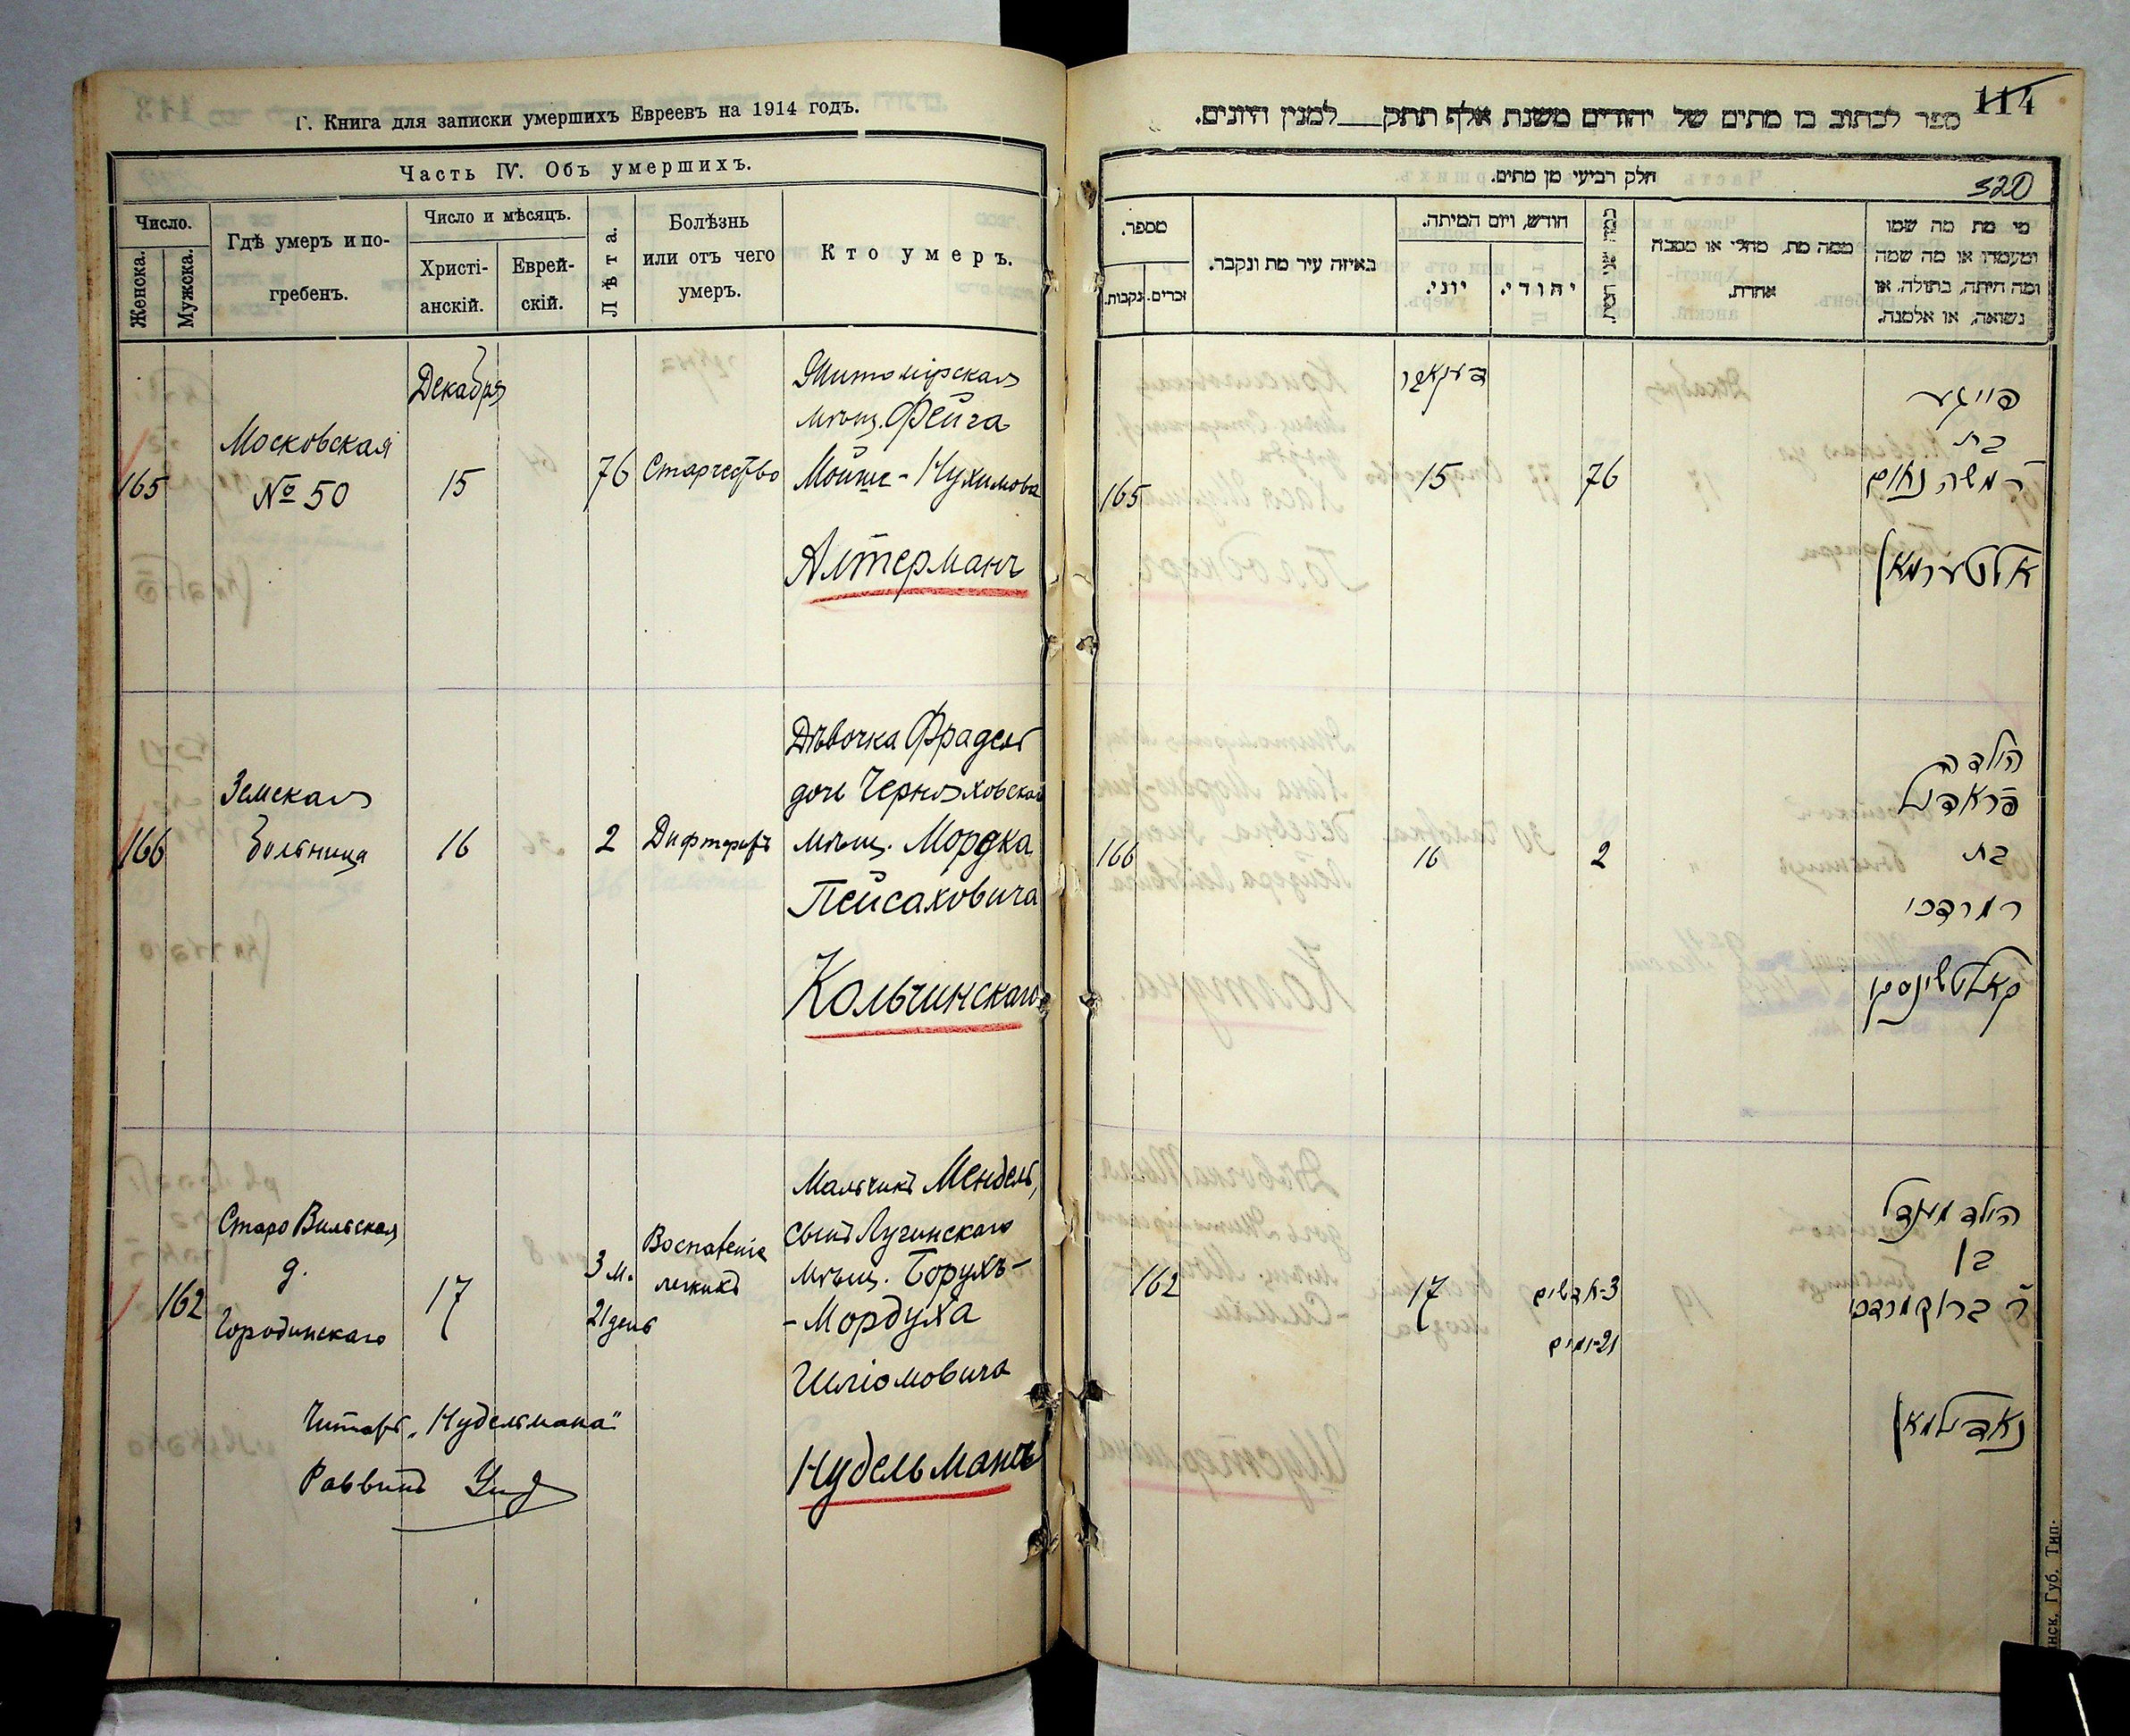 Г. Книга для записки умершихъ Евреевъ на 1914 годъ.
Часть IV. Объ умершихъ.
Число.
Женска.
Мужска.
Гдѣ умеръ и по-
гребенъ.
Число и мѣсяцъ.
Христі-
анскій.
Еврей-
скій.
Лѣта.
Болѣзнь
или отъ чего
умеръ.
Кто умеръ.
165
Московская
№ 50
Декабря
15
76
Старчество
Житомірская
мѣщ. Фейга
Мойше-Нухимова
Алтерманъ
166
Земская
больница
16
2
Дифтеритъ
Дѣвочка Фрадель
дочь Черняховскаго
мѣщ. Мордка
Пейсаховича
Кольчинскаго
162
Старо Вильская
д.
Городинскаго
17
3 м.
21 день
Воспаленіе
легкихъ
Мальчикъ Мендель,
сынъ Лугинскаго
мѣщ. Борухъ-
-Мордуха
Шліомовича
Нудельманъ
Читать „Нудельмана"
Раввинъ
114
ספר לכתוב בו מתים של יהודים משנת אלף תתק למנין היונים.
320
חלק רביעי מן מתים.
מספר.
נקבות.
זכרים.
באיזה עיר מת ונקבר.
חודש, ויום המיתה.
יוני.
יהודי.
ממה מת, מחלי או מסבה
אחרת.
מי מת מה שמו
ומעמדו או מה שמה
ומה היתה, בתולה, או
נשואה, או אלמנה.
165
דעקאבר
15
76
פייגע
בת
ר משה נחום
אלטערמאן
166
16
2
הילדה
פראדל
בת
ר מרדכי
קאלטשינסקי
162
17
3-חדשים
21-ימים
הילד מענדל
בן
ר ברוך מרדכי
נאדילמאן
нск. Губ. Тип.